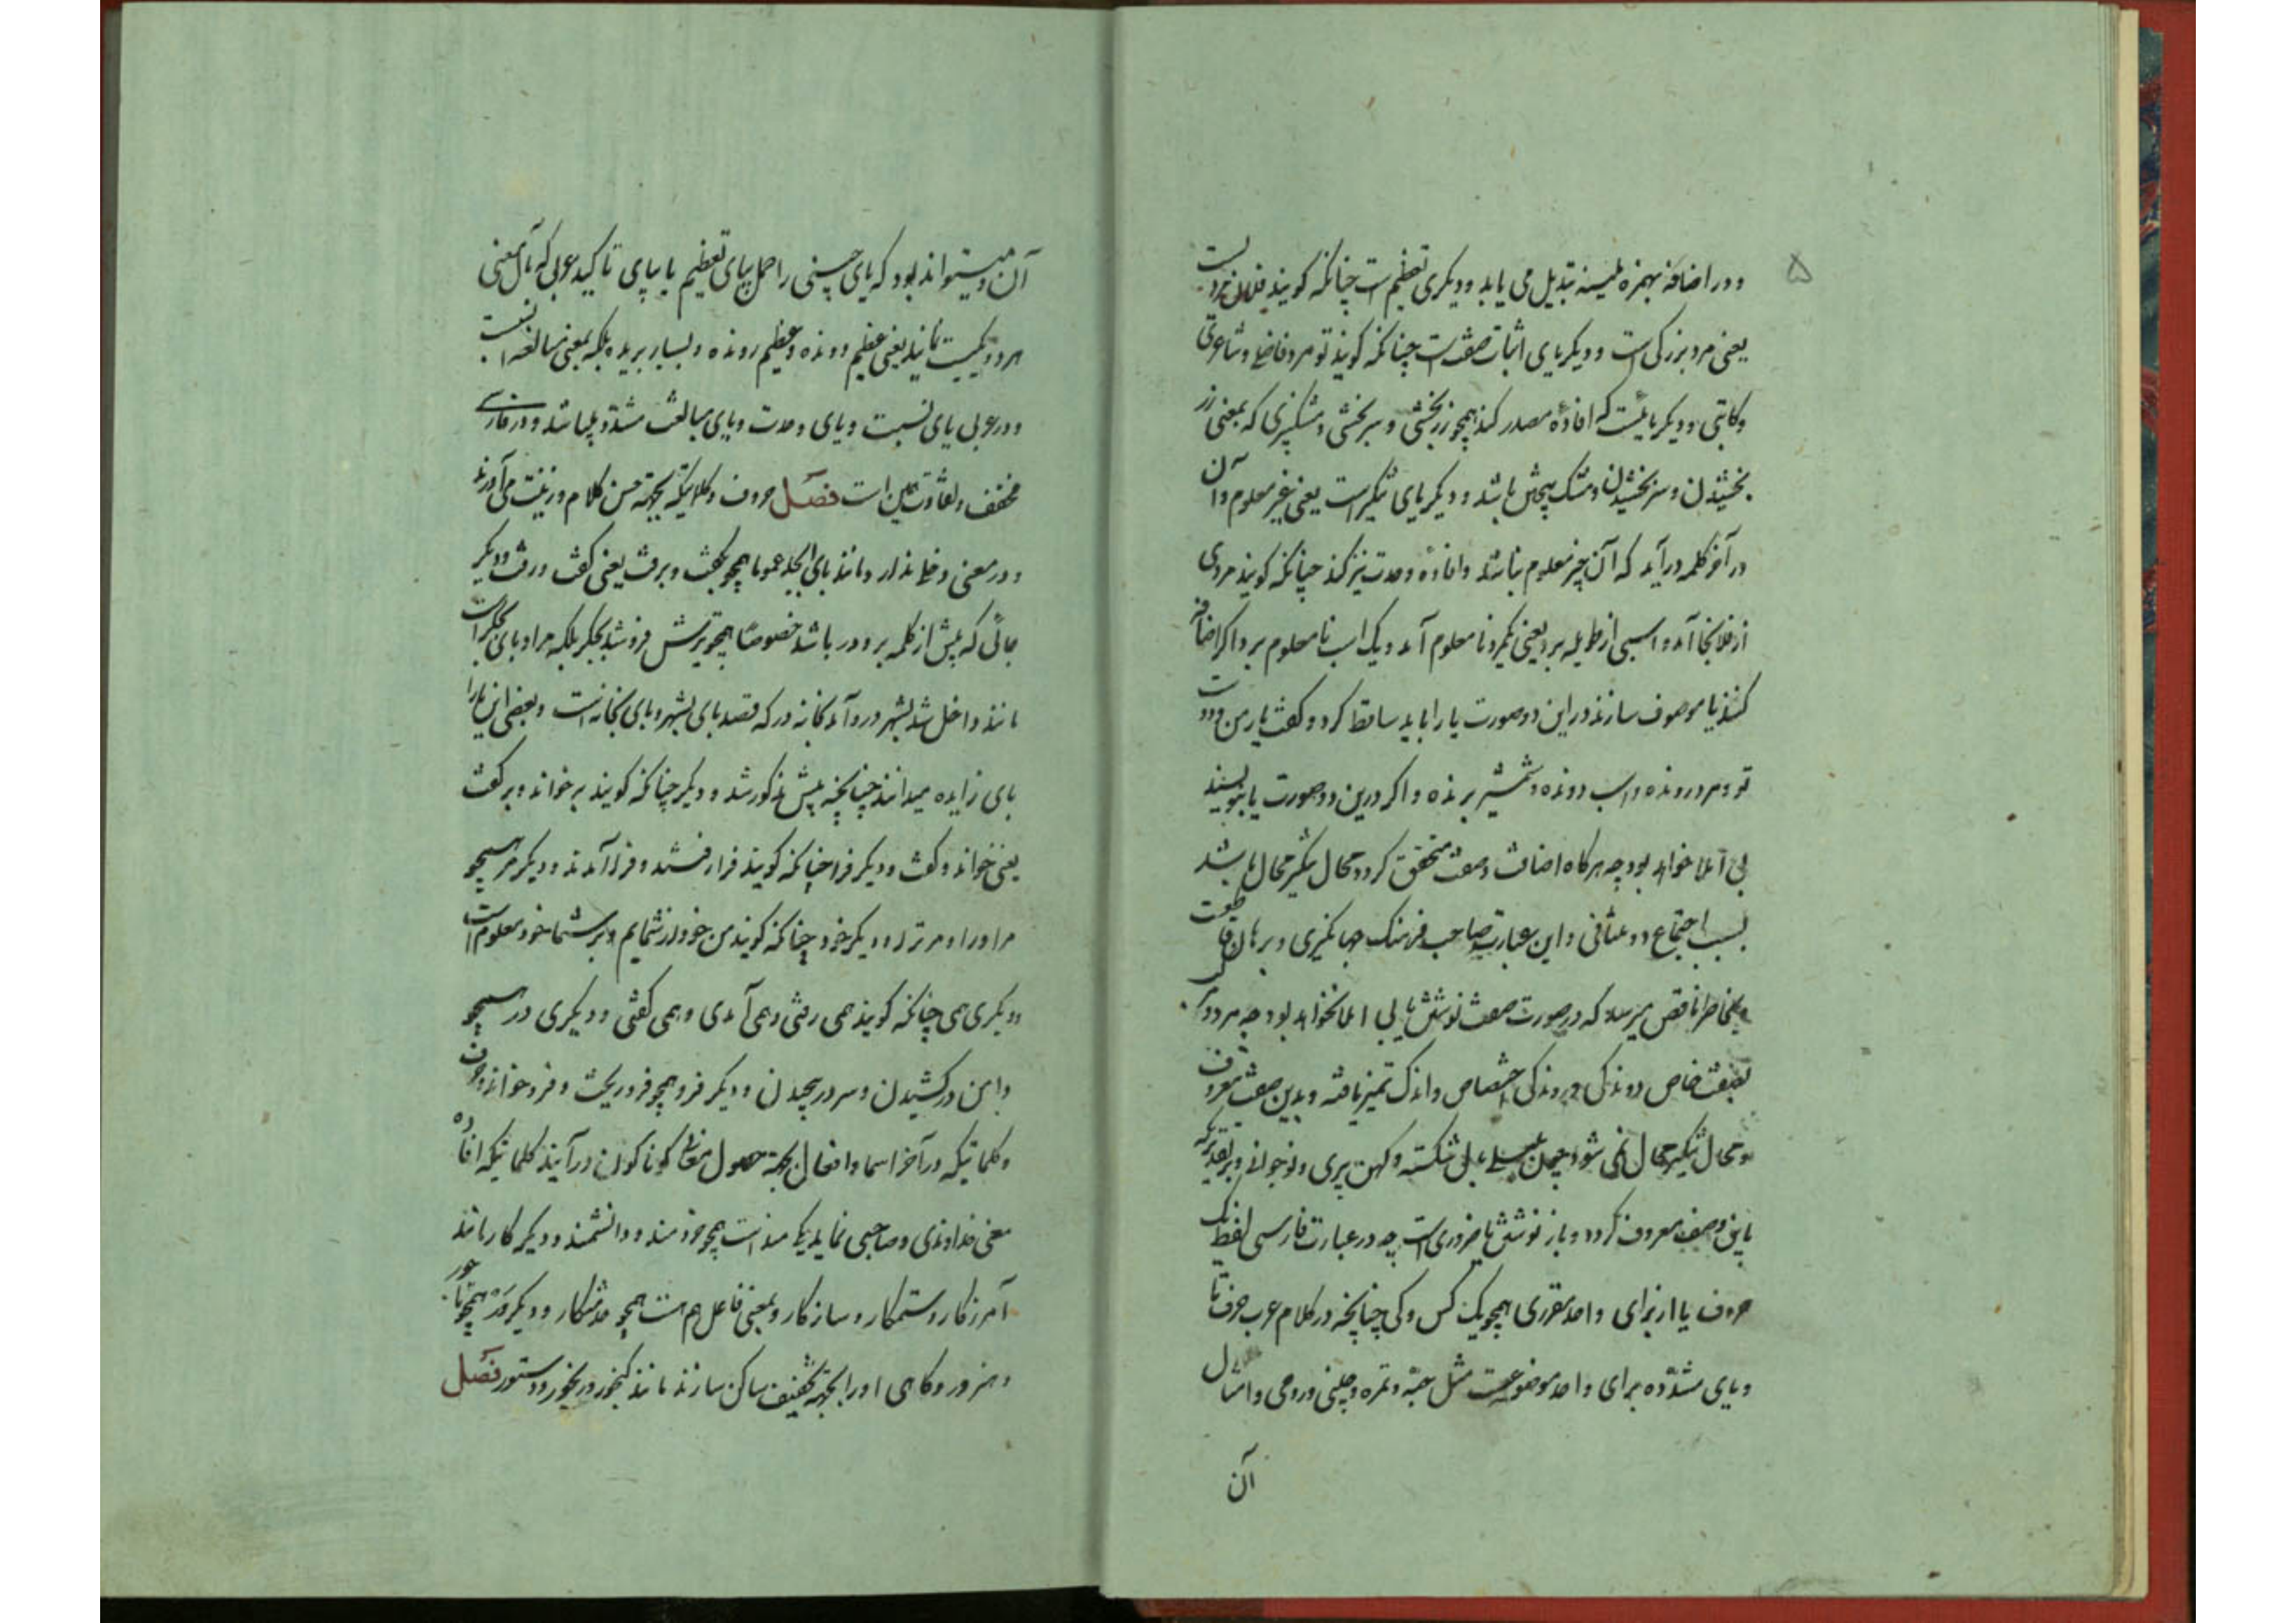 ۵
و در اضافه بهمزه ملینه تبدیل می یابد و دیگری تعظیم است چنانکه گویند فلان مردیست
یعنی مرد بزرگی است و دیگر یای اثبات صفت است چنانکه گویند تو مرد فاضلی و شاعری
و کاتبی و دیگر یائیست که افاده مصدر کند همچو زربخشی و سربخشی و مشکبیزی که بمعنی زر
بخشیدن و سر بخشیدن و مشک پیختن باشد و دیگر یای تنکیر است یعنی غیر معلوم و آن
در آخر کلمه درآید که آن چیز معلوم نباشد و افاده وحدت نیز کند چنانکه گویند مردی
از فلانجا آمد و اسبی از طویله برد یعنی یکمرد نامعلوم آمد و یک اسب نامعلوم برد اگر اضافه
کنند یا موصوف سازند در این دو صورت یا را باید ساقط کرد و گفت یار من و دوست
تو و مرد رونده و اسب دونده و شمشیر برنده و اگر درین دو صورت یا بنویسند
بی املا خواهد بود چه هرگاه اضافت و صفت متحقق گردد محال تنکیر محال باشد
بسبب اجتماع دو منافی و این عبارت صاحب فرهنگ جهانگیری و برهان قاطعست
بخاطر ناقص میرسد که در صورت صفت نوشتن یا بی املا نخواهد بود چه مرد و
بصفت خاص دوندگی و روندگی اختصاص و اندک تمیز یافته و بدین صفت معروف
و محال تنکیر محال نمی شود چون بلبلی شکسته و کهن پیری و نوجوانی و بر تقدیریکه
باین وصف معروف گردد و باز نوشتن یا ضروری است چه در عبارت فارسی لفظ یک
حروف یا از برای واحد مقرری همچو یک کس و کی چنانچه در کلام عرب حرف تا
و یای مشدده برای واحد موضوعست مثل حبة و تمره و چلنی و رومی و امثال
آن
آن و میتواند بود که یای حسینی را حمل بیای تعظیم یا بیای تاکید عربی که مآل معنی
هر دو یکیست نمایند یعنی عظیم دونده و عظیم رونده و بسیار بریده بلکه بمعنی مبالغه است
و در عربی یای نسبت و یای وحدت و یای مبالغت مشدد میباشد و در فارسی
مخفف و تفاوت همین است فصل حروف و کلماتیکه بجهة حسن کلام و زینت می آورند
و در معنی دخلی ندارد مانند بای ابجد عموما همچو بگفت و برفت یعنی گفت و رفت و دیگر
جائی که پیش از کلمه بر و در باشد خصوصا همچو بر فروشد بجگر بلکه مراد بای بجگر است
مانند داخل شد بشهر درو آمد بخانه در که قصد بای بشهر و بای بخانه است و بعضی این با را
بای زایده میدانند چنانچه پیش مذکور شد و دیگر چنانکه گویند بر خواند و بر گفت
یعنی خواند و گفت و دیگر فرا چنانکه گویند فرا رفتند و فرا آمدند و دیگر مر همچو
مرا و را و مر ترا و دیگر خود چنانکه گویند من خود از شمایم و بر شما خود معلوم است
و دیگری همی چنانکه گویند همی رفتی و همی آمدی و همی گفتی و دیگری در همچو
دامن در کشیدن و سر در پیچیدن و دیگر فرو همچو فرو ریخت و فرو خواند حروف
و کلماتیکه در آخر اسما و افعال بجهة حصول معانی گوناگون درآیند کلماتیکه افاده
معنی خداوندی و صاحبی نماید یکی مند است همچو خردمند و دانشمند و دیگر کار مانند
آمرزکار و ستمکار و سازکار و بمعنی فاعل هم هست همچو خدمتکار و دیگر وَر همچو تاجور
و هنرور و کاهی او را بجهة تخفیف ساکن سازند مانند گنجور و رنجور و دستور فصل